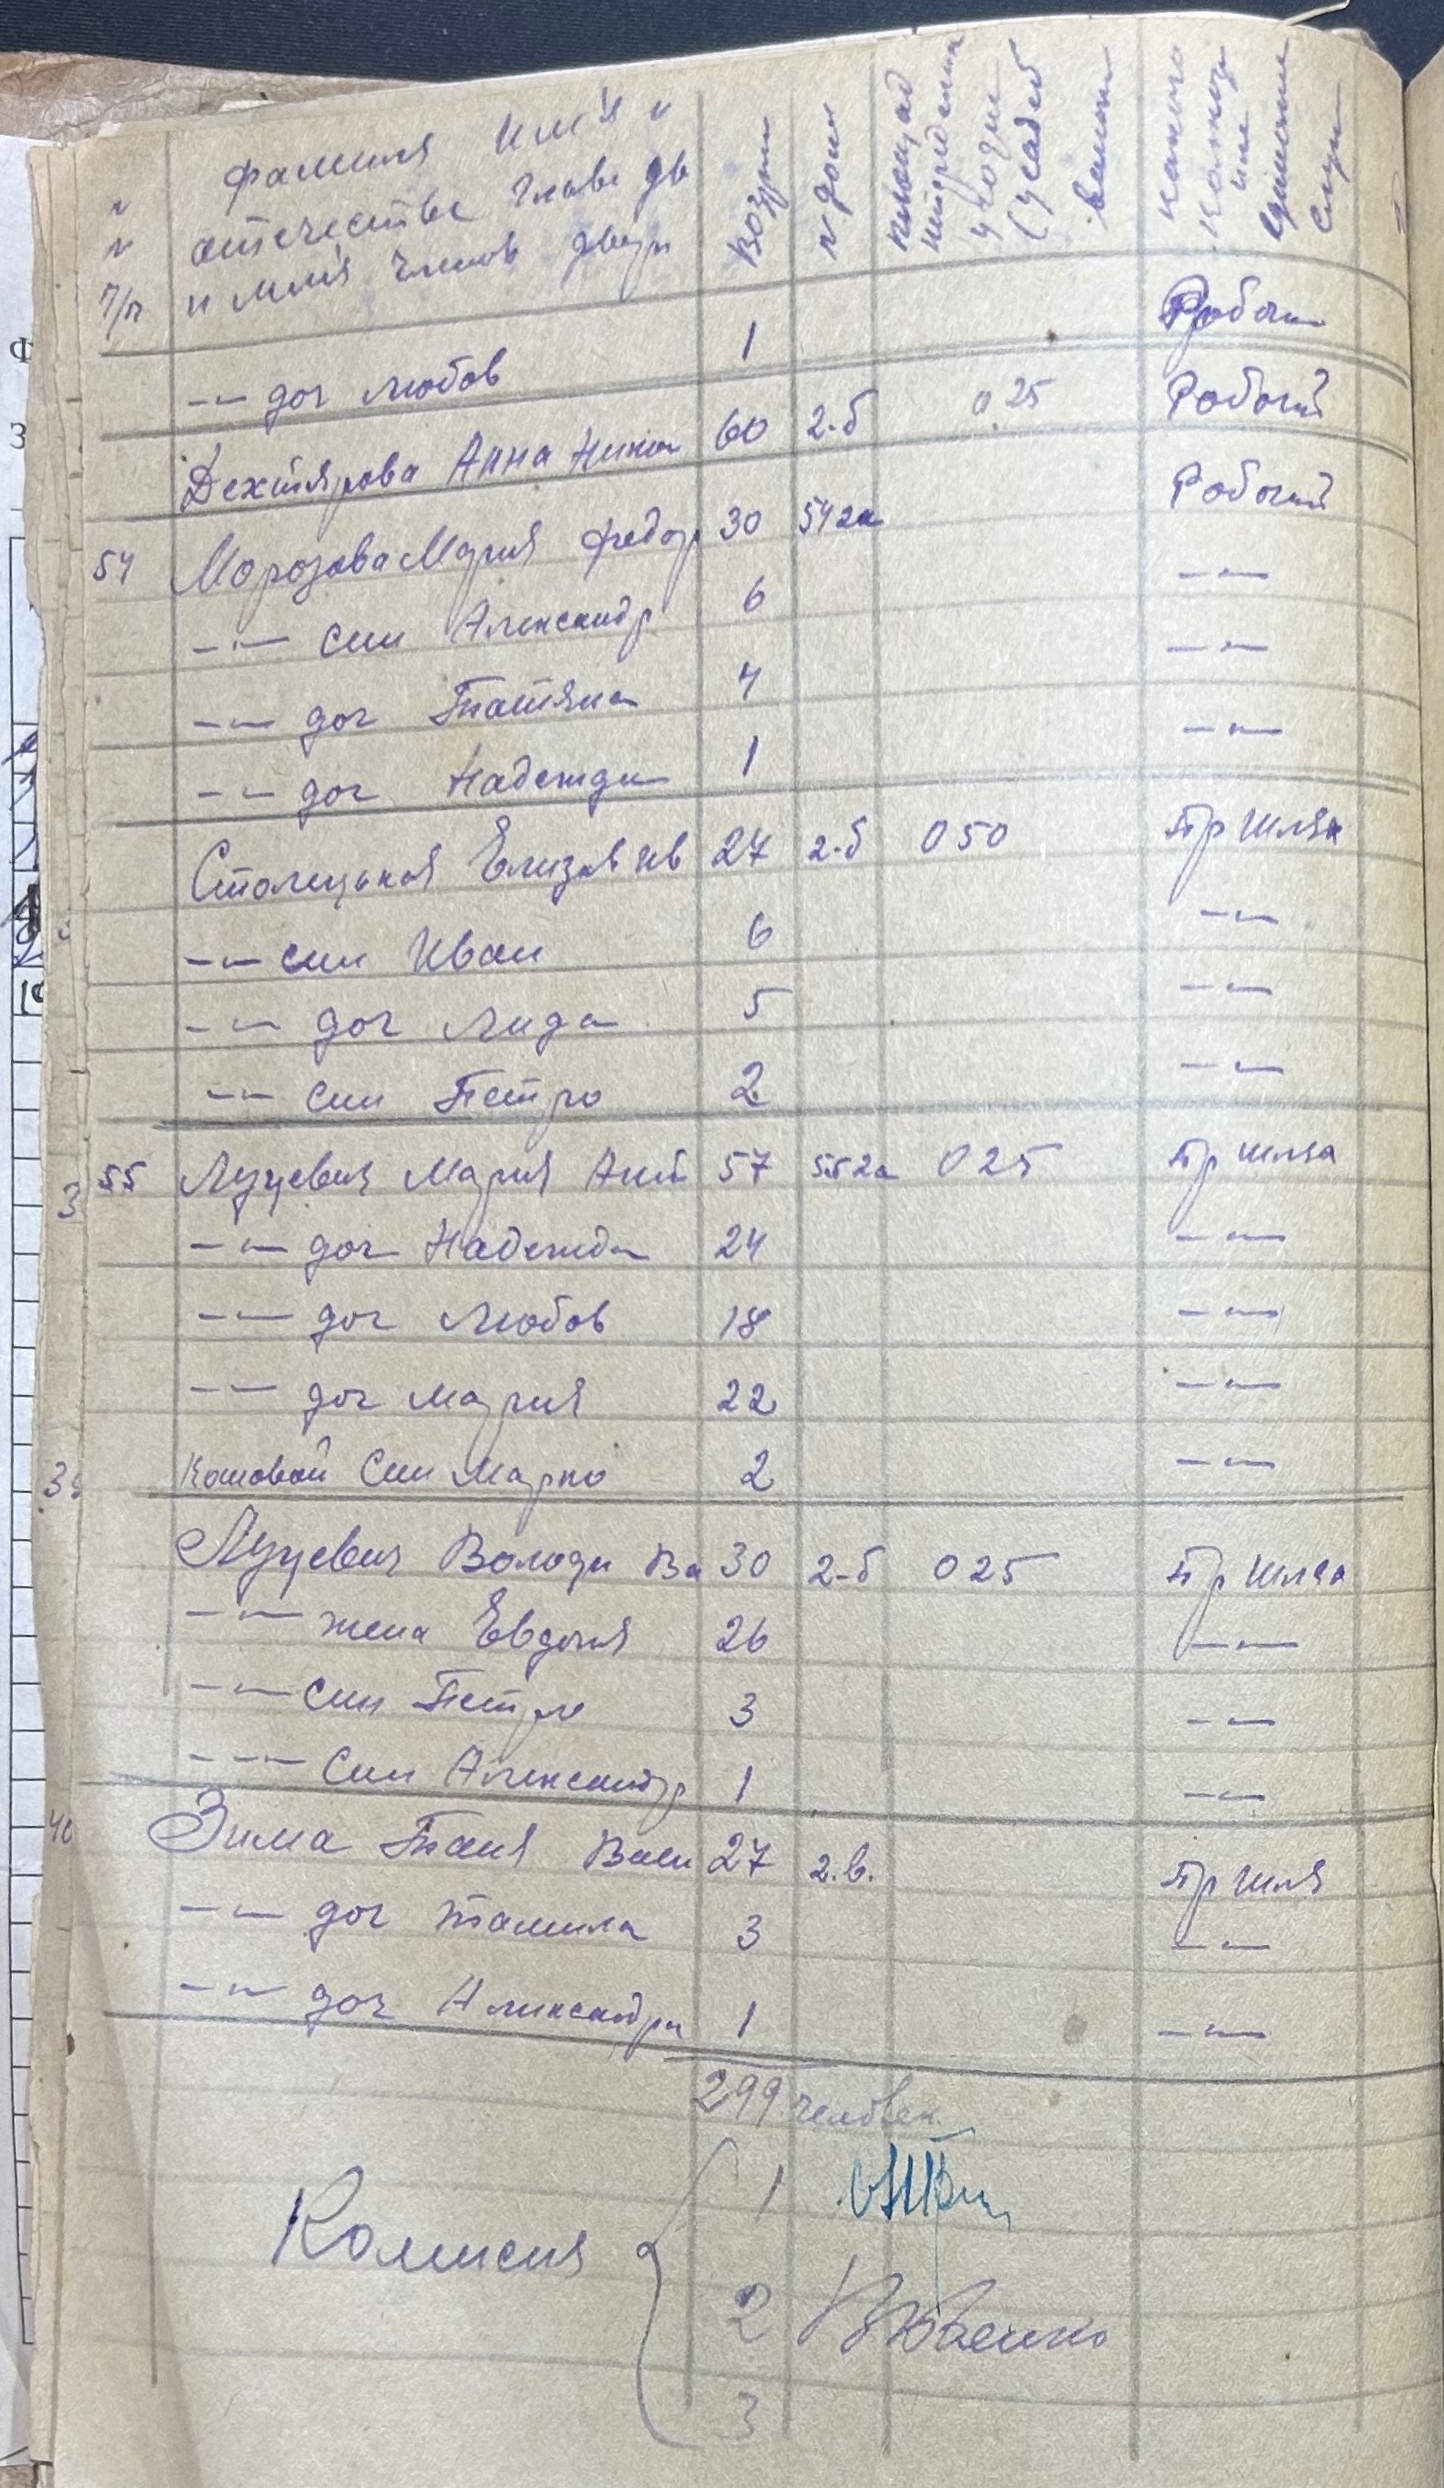 N N п/п
фамилия Имя и
отечество Главы дв
и имя Членов двора
Возра
N дом
площад
(усадеб
какого
-"- доч Любов 1 Робочи
Дехтярова Анна Никол 60 2-б 0,25 Робочий
54 Морозова Мария Федор 30 54 2а Робочий
-"- син Александр 6 -"-
-"- доч Татяна 4 -"-
-"- доч Надежда 1 -"-
Столецькая Елизав Ив 27 2-б 0 50 Пр Шляа
-"- син Иван 6 -"-
-"- доч Лида 5 -"-
-"- син Петро 2 -"-
55 Луцевич Мария Ант 57 55 2а 0 25 Пр шляа
-"- доч Надежда 24 -"-
-"- доч Любов 18 -"-
-"- доч Мария 22 -"-
Кошовой Син Марко 2 -"-
Луцевич Володи Ва 30 2-б 0 25 Пр Шляа
-"- жена Евдокия 26 -"-
-"- Син Петро 3 -"-
-"- Син Александр 1 -"-
Зима Таня Васи 27 2.в. Пр Шля
-"- доч Тамила 3 -"-
-"- доч Александра 1 -"-
299 человек
Комисия
1
2 Вовенко
3